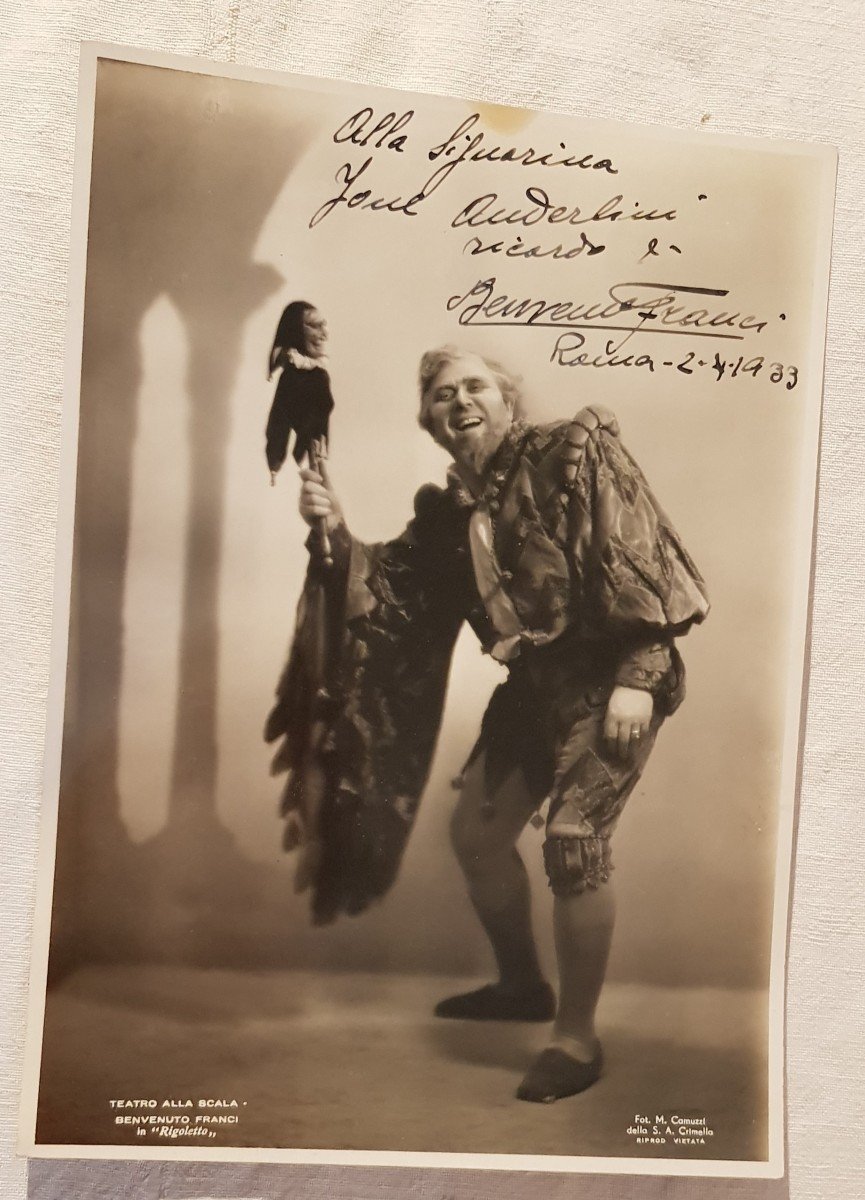 Alla Signorina
Jone Anderlini
ricordo di
Benvenuto Franci
Roma - 2 - 4 - 1933
TEATRO ALLA SCALA -
BENVENUTO FRANCI
in "Rigoletto„
Fot. M. Camuzzi
della S. A. Crimella
RIPROD VIETATA